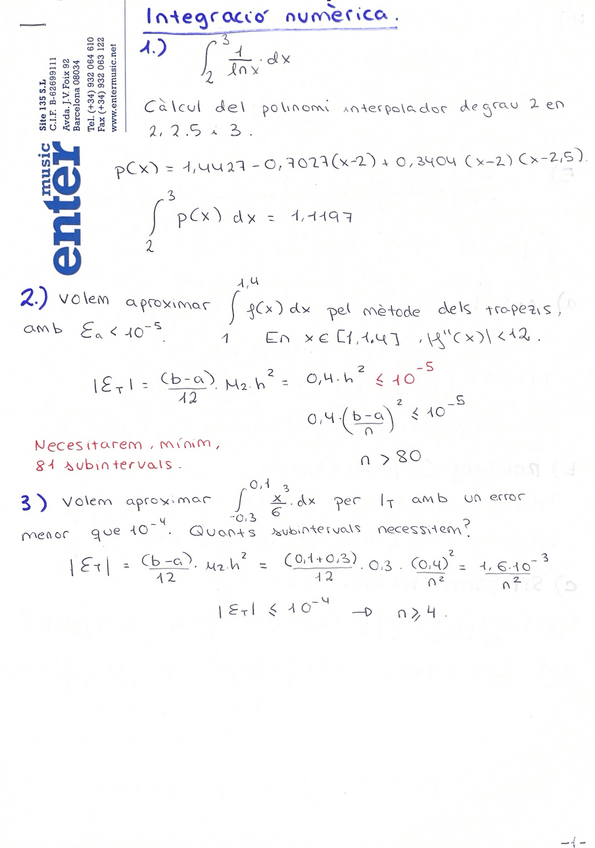 Integració numèrica.
Site 135 S.L
C.I.F. B-62699111
Avda. J.V. Foix 92
Barcelona 08034
Tel. (+34) 932 064 610
Fax (+34) 932 063 122
www.entermusic.net
enter music
1.) ∫₂³ 1/ln x · dx
Càlcul del polinomi interpolador de grau 2 en
2, 2.5 i 3.
p(x) = 1,4427 - 0,7027(x-2) + 0,3404 (x-2)(x-2,5).
∫₂³ p(x) dx = 1,1197
2.) Volem aproximar ∫₁^1,4 f(x) dx pel mètode dels trapezis,
amb εa < 10⁻⁵. En x ∈ [1,1.4], |f''(x)| < 12.
|εT| = (b-a)/12 · M₂·h² = 0,4·h² ≤ 10⁻⁵
0,4·((b-a)/n)² ≤ 10⁻⁵
Necesitarem, mínim,
81 subintervals.
n > 80
3) Volem aproximar ∫₋0,3^0,1 x³/6 · dx per IT amb un error
menor que 10⁻⁴. Quants subintervals necessitem?
|εT| = (b-a)/12 · M₂·h² = (0,1+0,3)/12 · 0,3 · (0,4)²/n² = 1,6·10⁻³/n²
|εT| ≤ 10⁻⁴ → n ≥ 4.
-1-